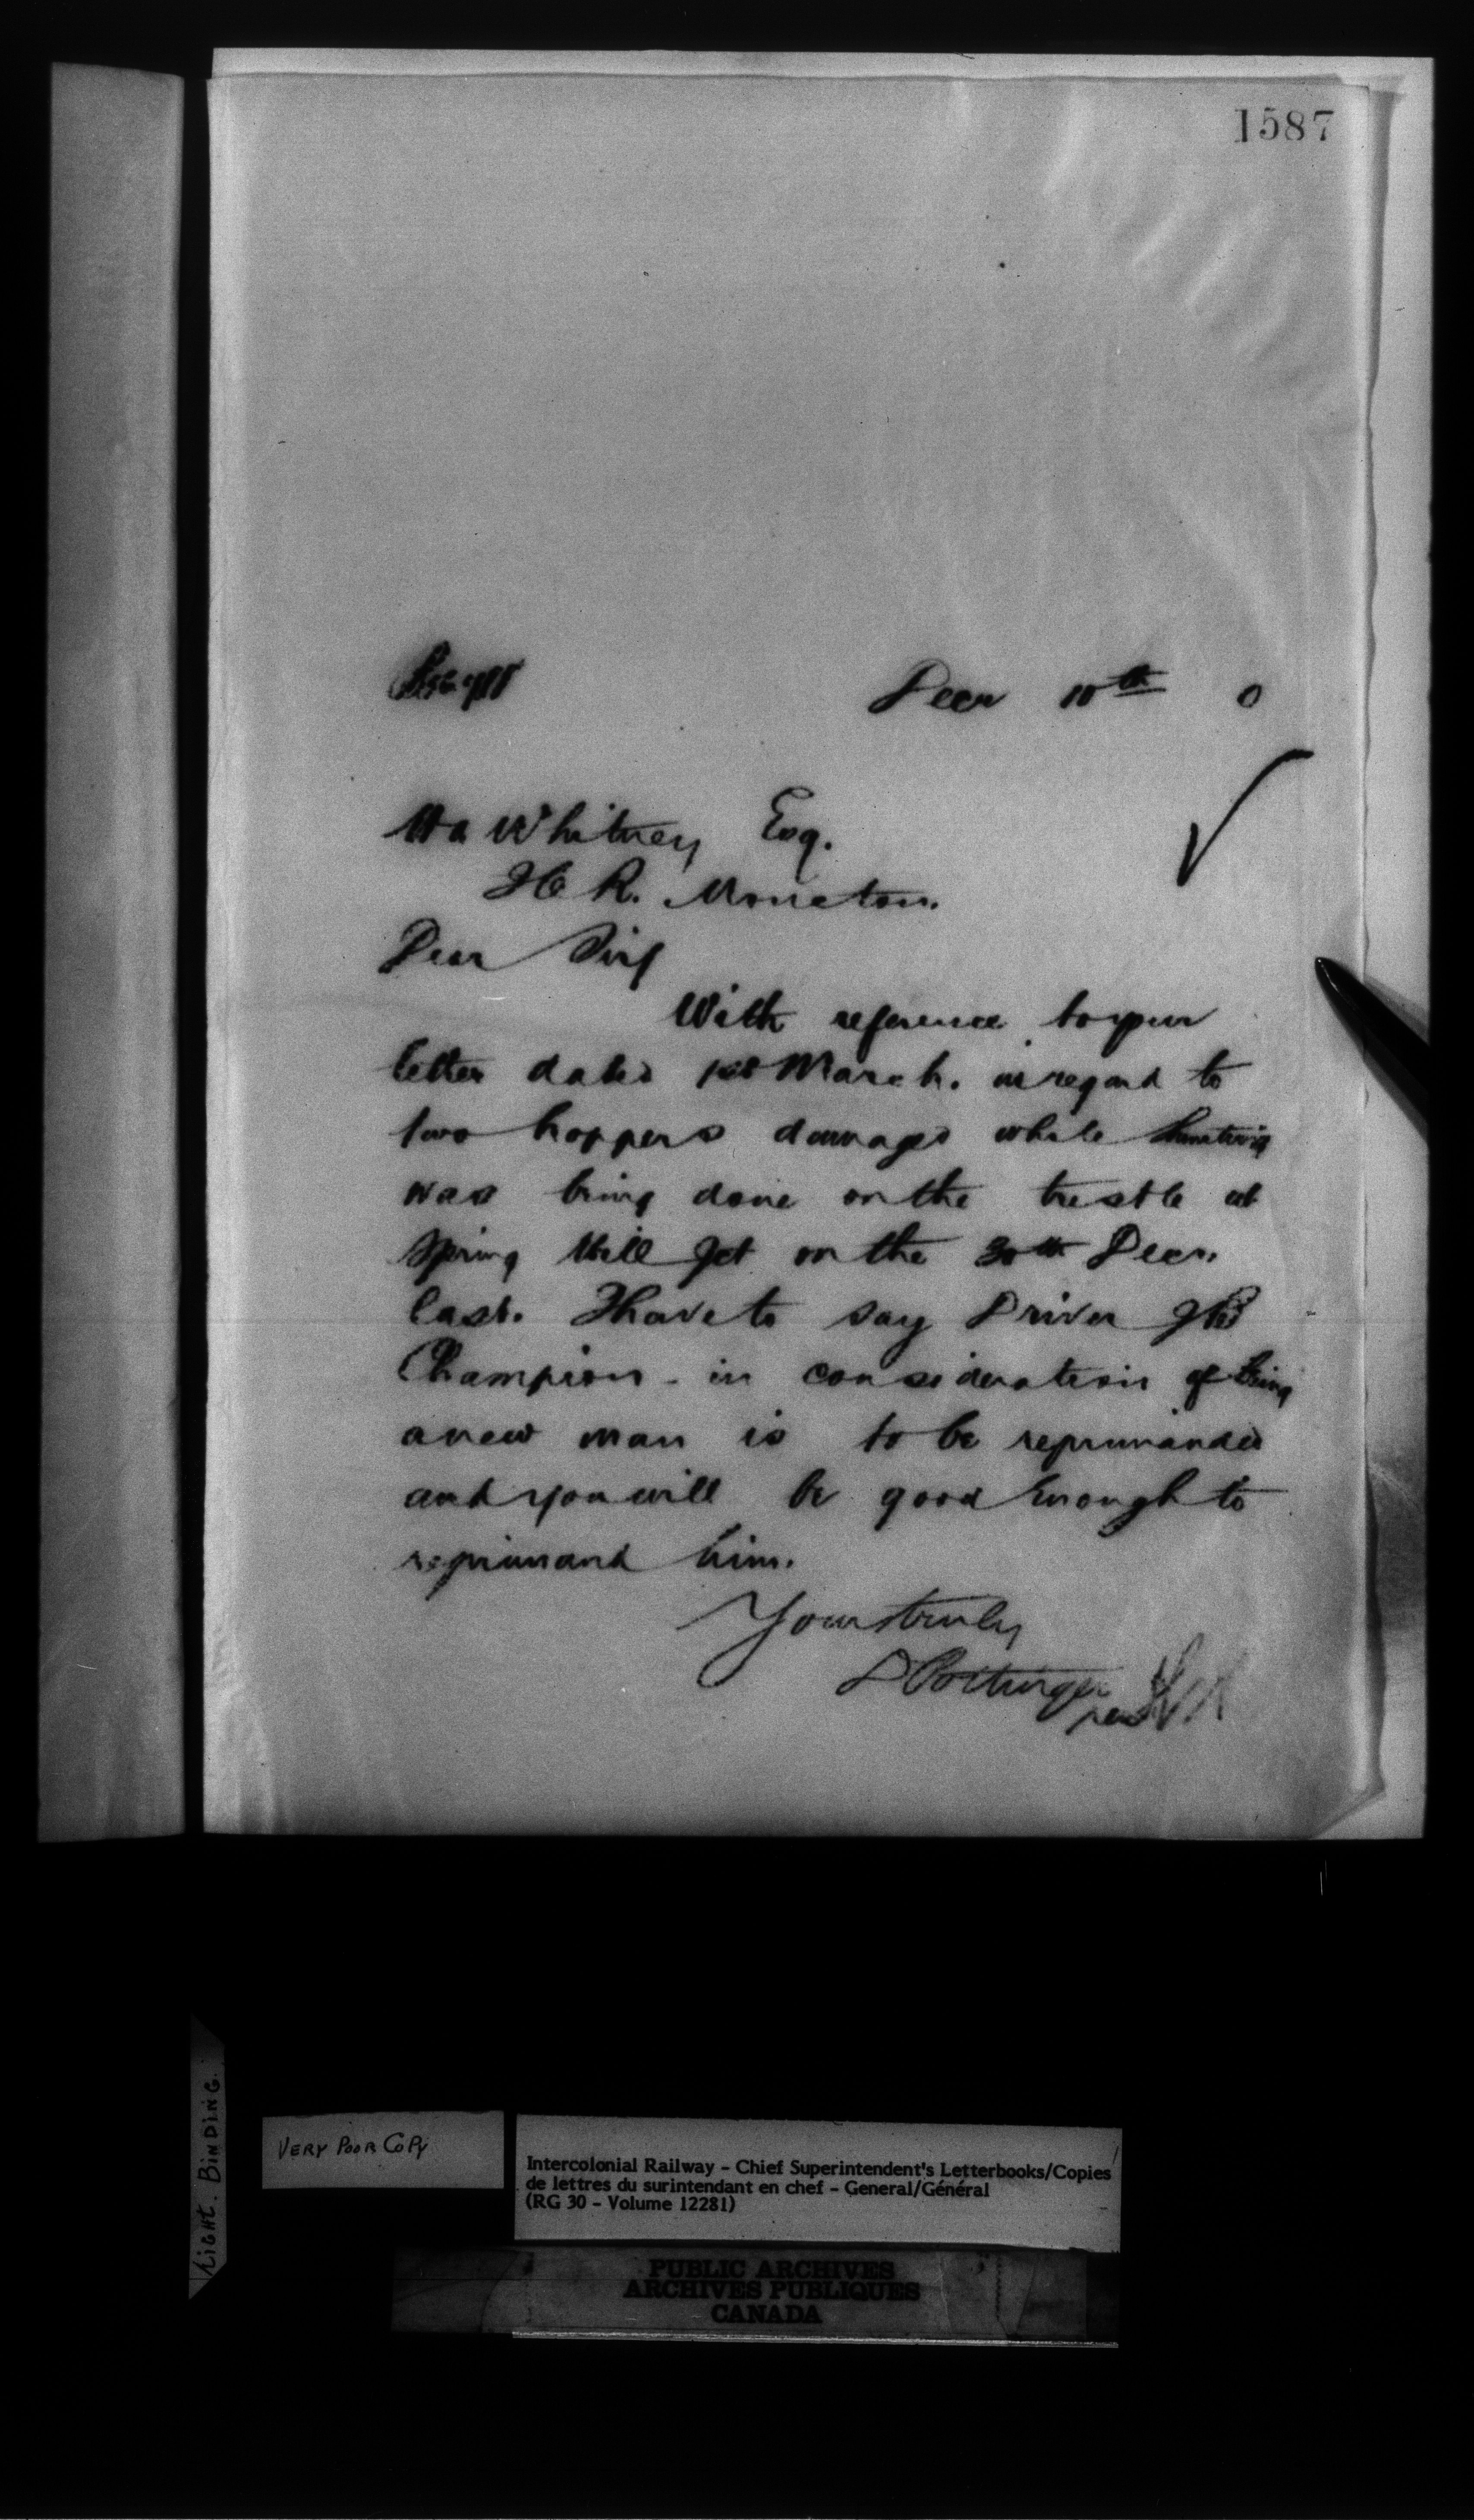 1587
Decr 10th 0
HA Whitney Esq.
I C R. Moncton.
Dear Sir,
With reference to your
letter dated 1st March. in regard to
two hoppers damaged while shunting
was being done on the trestle at
Spring Hill Jct on the 30th Decr.
last. I have to say Driver
Champion - in consideration of being
a new man is to be reprimanded
and you will be good enough to
reprimand him.
Yours truly
D Pottinger
per
LIGHT. BINDING.
VERY POOR COPY
Intercolonial Railway - Chief Superintendent's Letterbooks/Copies
de lettres du surintendant en chef - General/Général
(RG 30 - Volume 12281)
PUBLIC ARCHIVES
ARCHIVES PUBLIQUES
CANADA